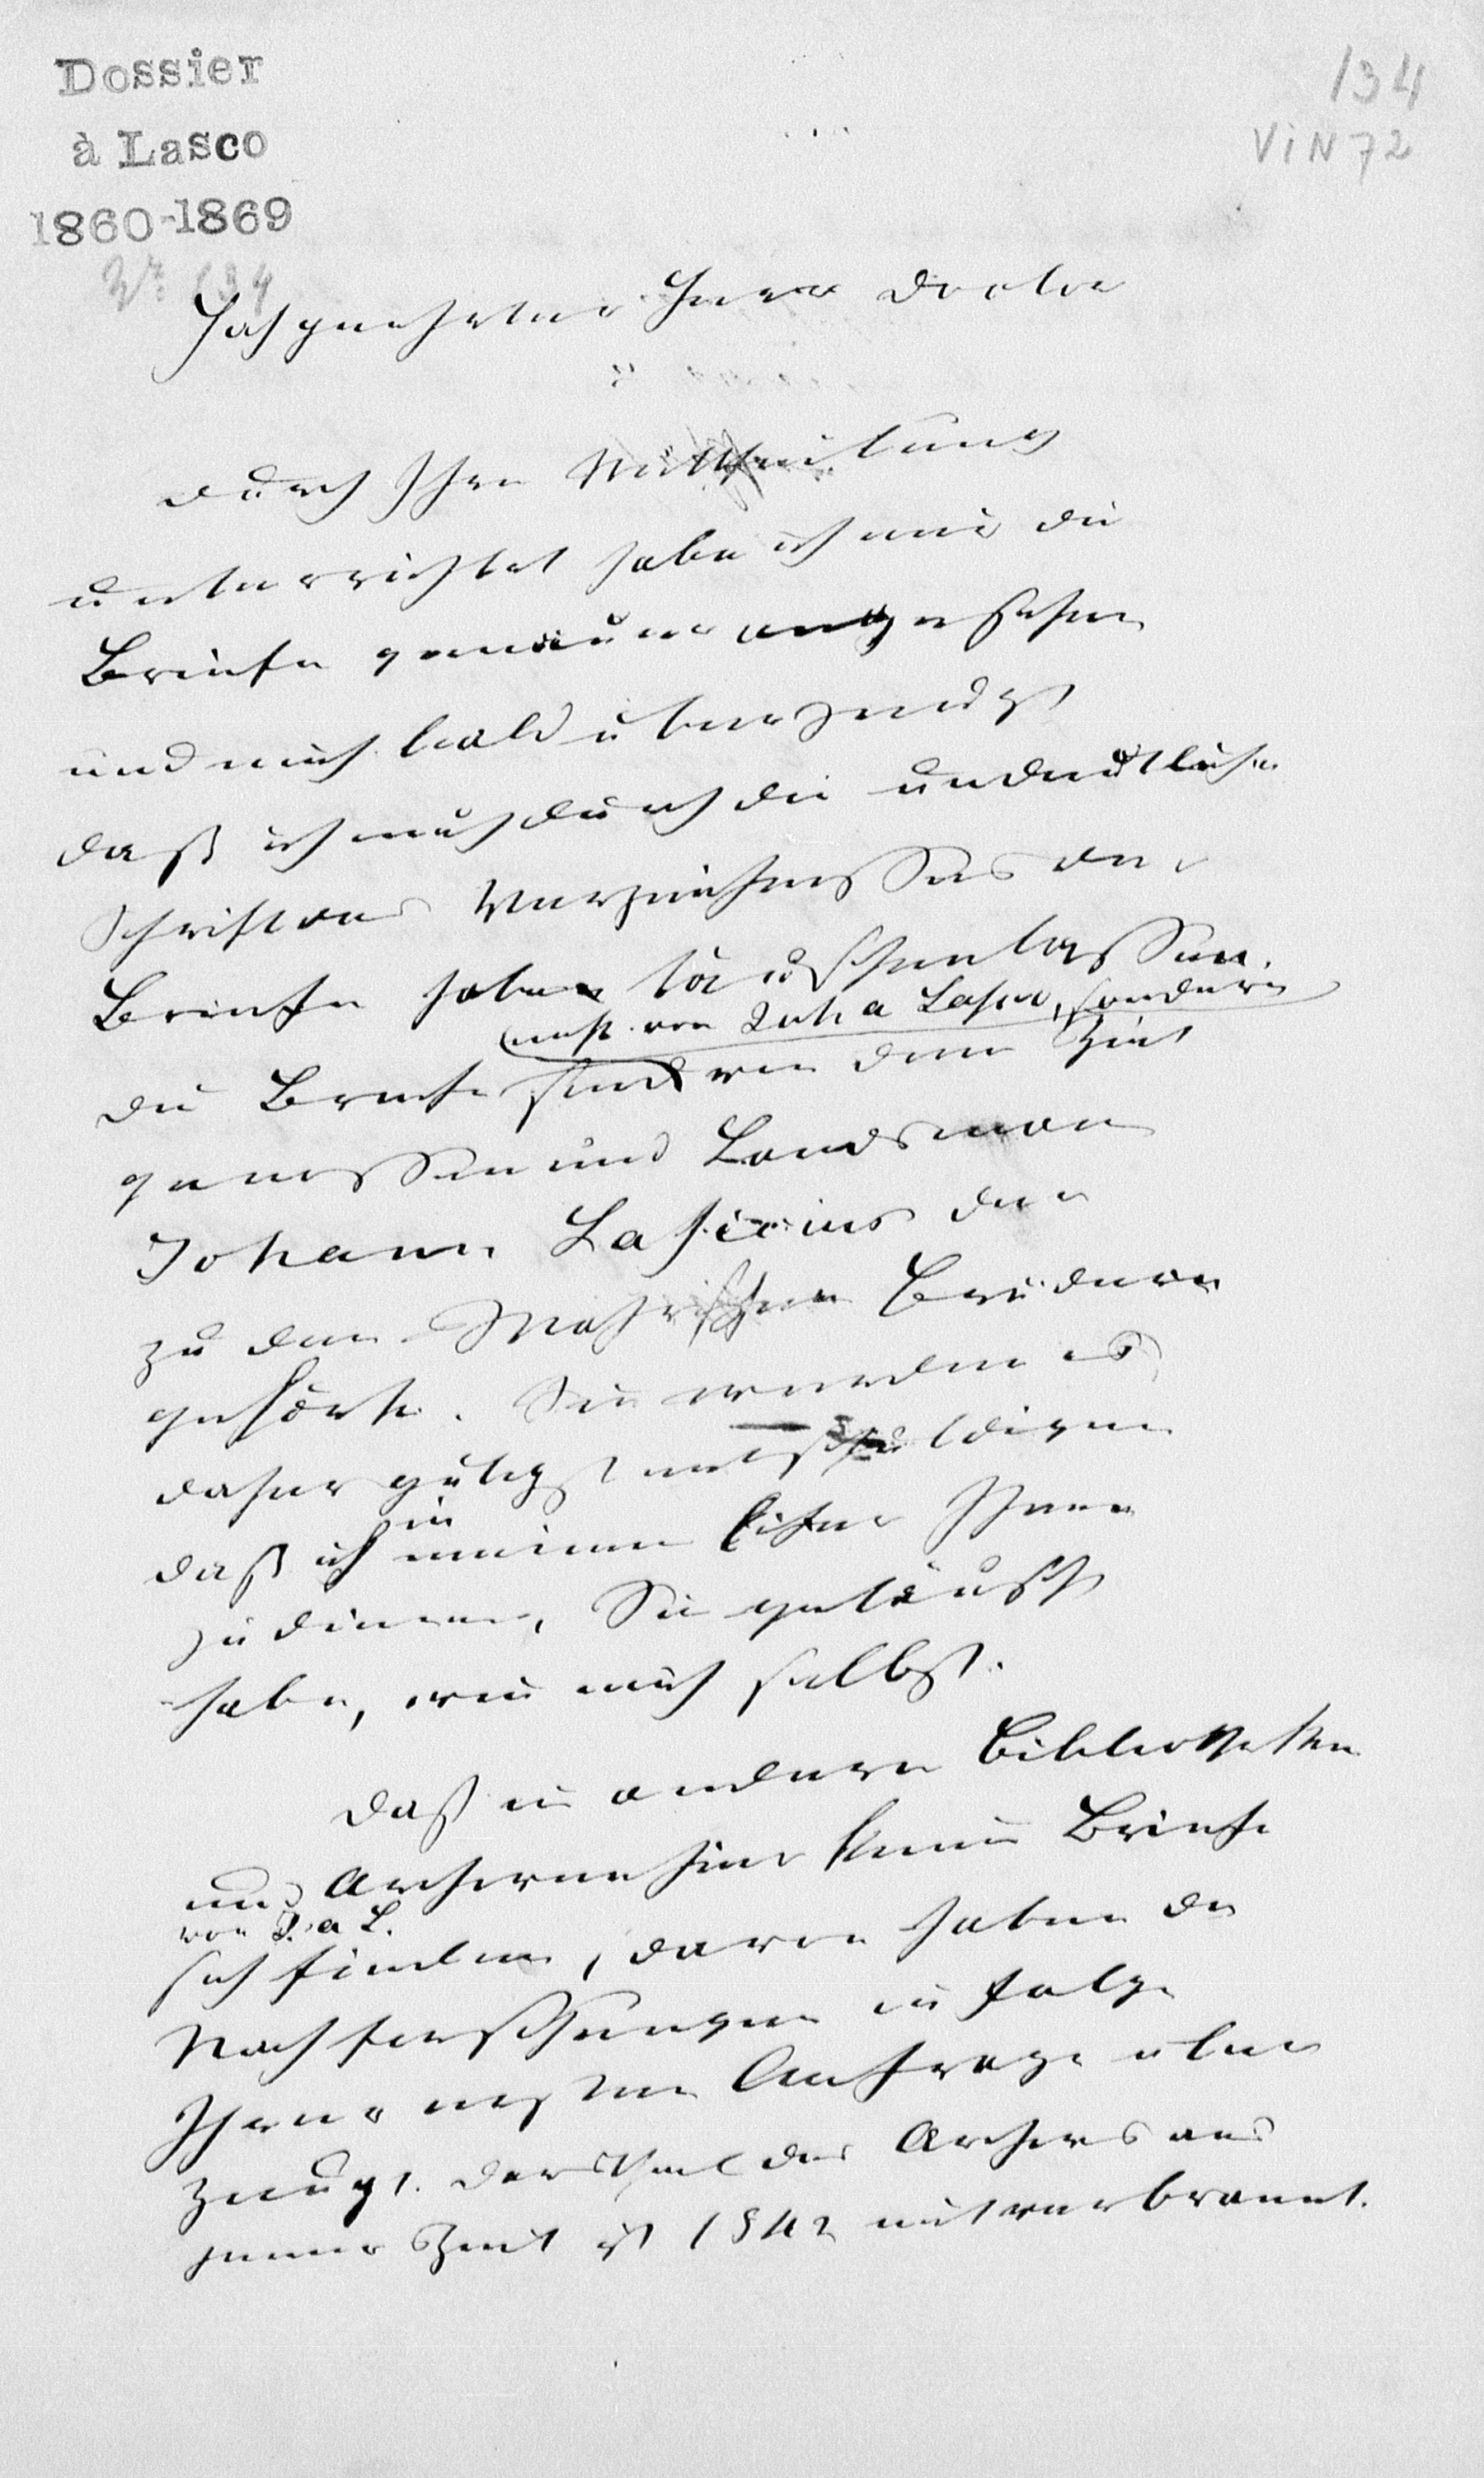 Dossier
à Lasco
1860-1869
Nr. 134
134
VIN 72
Hochgeehrter Herr Doctor
Durch Ihre Mittheilung
unterrichtet habe ich mir die
Briefe genauer angesehen
und mich bald überzeugt
daß ich mich durch die undeutliche
Schrift des Verzeichnisses der
Briefe habe täuschen lassen.
nicht von Joh a Lasco, sondern
Die Briefe sind von dem Zeit
genossen und Landsmann
Johann Lasicius der
zu den Mährischen Brüdern
gehörte. Sie werden es
daher gütigst entschuldigen
daß ich in meinem Eifer Ihnen
zu dienen, Sie getäuscht
habe, wie mich selbst.
Daß in anderen Bibliotheken
und Archiven hier keine Briefe
von J. a L.
sich finden, davon haben die
Nachforschungen in Folge
Ihrer ersten Anfrage über
zeugt. Der Theil des Archivs aus
jener Zeit ist 1842 mit verbrannt.